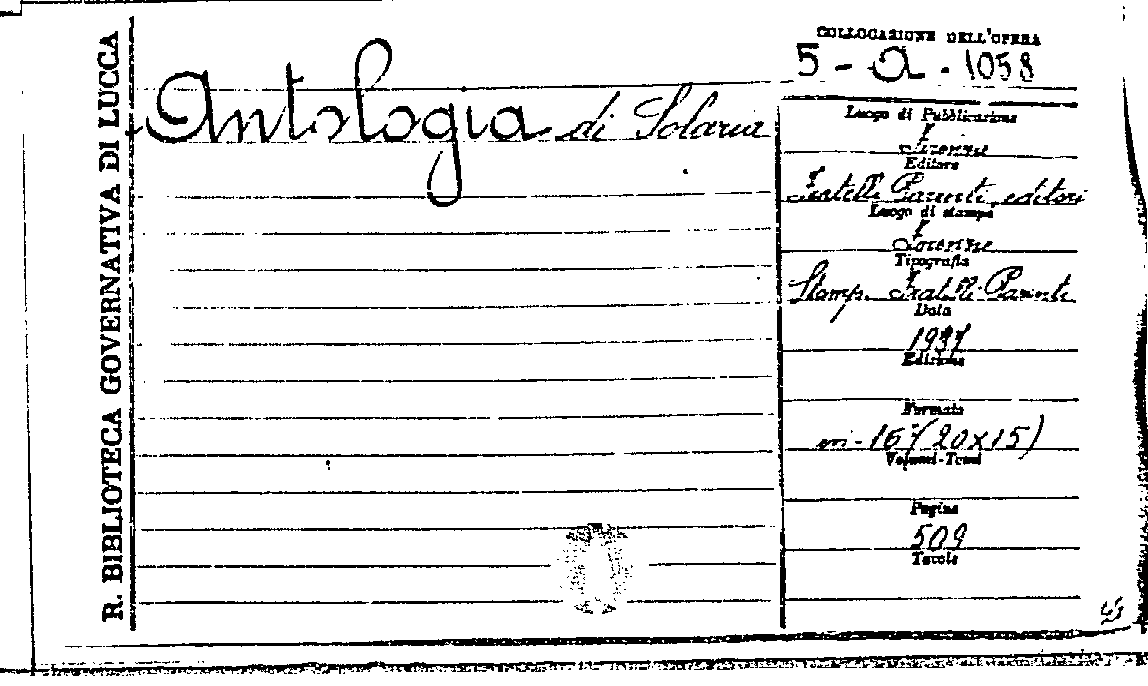 R. BIBLIOTECA GOVERNATIVA DI LUCCA
Antologia di Solaria
COLLOCAZIONE DELL'OPERA
5 - a - 1058
Luogo di Pubblicazione
Firenze
Editore
Fratelli Parenti editori
Luogo di stampa
Firenze
Tipografia
Stamp. Fratelli Parenti
Data
1937
Edizione
Formato
in-16° (20x15)
Volumi-Tomi
Pagine
509
Tavole